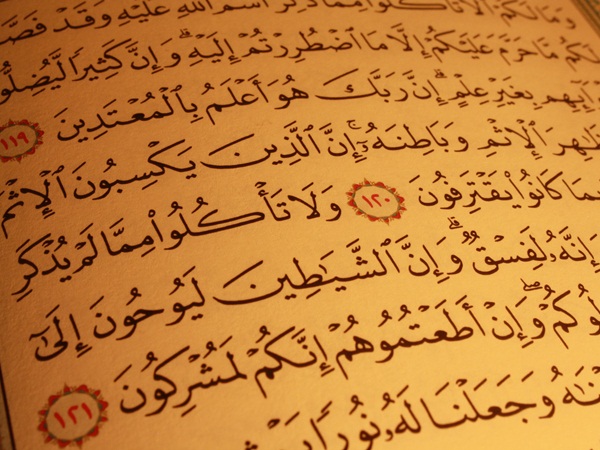 وَمَا لَكُمْ أَلَّا تَأْكُلُوا۟ مِمَّا ذُكِرَ ٱسْمُ ٱللَّهِ عَلَيْهِ وَقَدْ فَصَّ
لَكُم مَّا حَرَّمَ عَلَيْكُمْ إِلَّا مَا ٱضْطُرِرْتُمْ إِلَيْهِ ۗ وَإِنَّ كَثِيرًا لَّيُضِلُّو
آئِهِم بِغَيْرِ عِلْمٍ ۗ إِنَّ رَبَّكَ هُوَ أَعْلَمُ بِٱلْمُعْتَدِينَ ١١٩
ظَٰهِرَ ٱلْإِثْمِ وَبَاطِنَهُۥٓ ۚ إِنَّ ٱلَّذِينَ يَكْسِبُونَ ٱلْإِثْمَ
بِمَا كَانُوا۟ يَقْتَرِفُونَ ١٢٠ وَلَا تَأْكُلُوا۟ مِمَّا لَمْ يُذْكَرِ
وَإِنَّهُۥ لَفِسْقٌ ۗ وَإِنَّ ٱلشَّيَٰطِينَ لَيُوحُونَ إِلَىٰٓ
لُوكُمْ ۖ وَإِنْ أَطَعْتُمُوهُمْ إِنَّكُمْ لَمُشْرِكُونَ ١٢١
نَٰهُ وَجَعَلْنَا لَهُۥ نُورًا